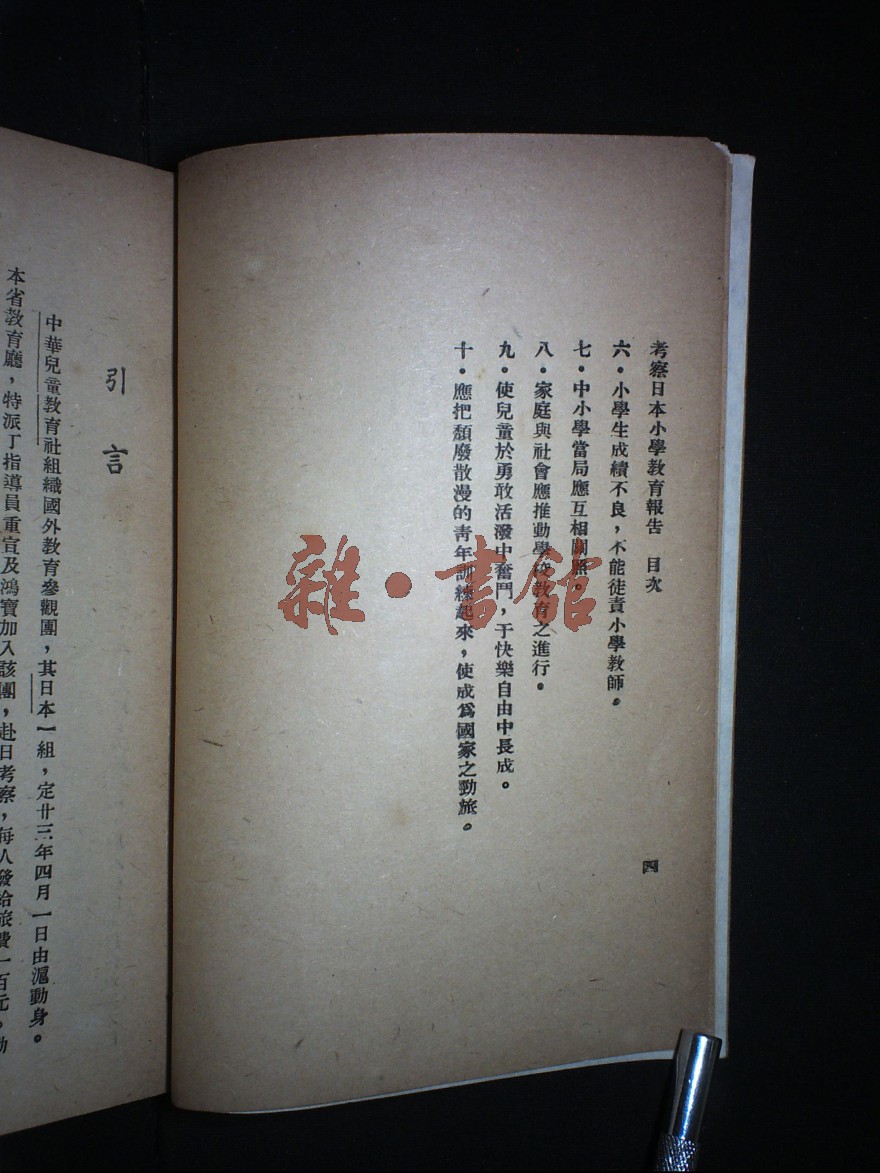 考察日本小學教育報告 目次
四
六。小學生成績不良，不能徒責小學教師。
七。中小學當局應互相關照。
八。家庭與社會應推動學校教育之進行。
九。使兒童於勇敢活潑中奮鬥，于快樂自由中長成。
十。應把頹廢散漫的青年訓練起來，使成爲國家之勁旅。
引言
中華兒童教育社組織國外教育參觀團，其日本一組，定廿三年四月一日由滬動身。
本省教育廳，特派丁指導員重宣及鴻寶加入該團，赴日考察，每人發給旅費一百元。
雜·書館